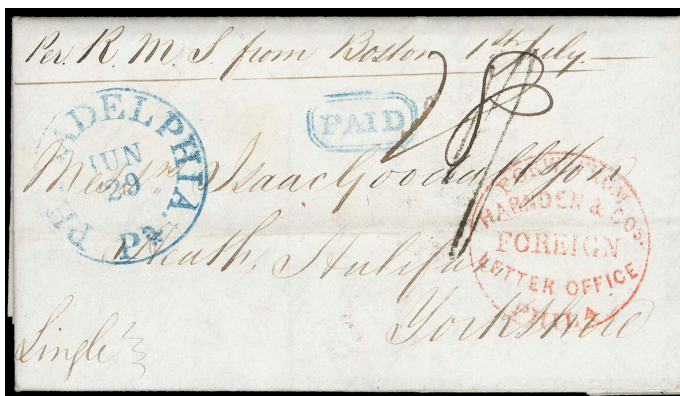 Per R. M. S. from Boston 1st July.
PHILADELPHIA Pa.
JUN
29
PAID
Messrs Isaac Goodall & Son
Heath, Halifax,
Yorkshire
Single
FORW'D FROM
HARNDEN & COS.
FOREIGN
LETTER OFFICE
PHILA